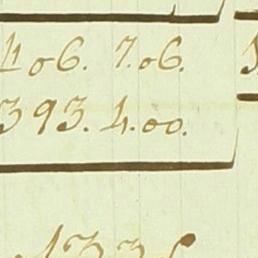 406. 7. 06.
393. 4. 00.